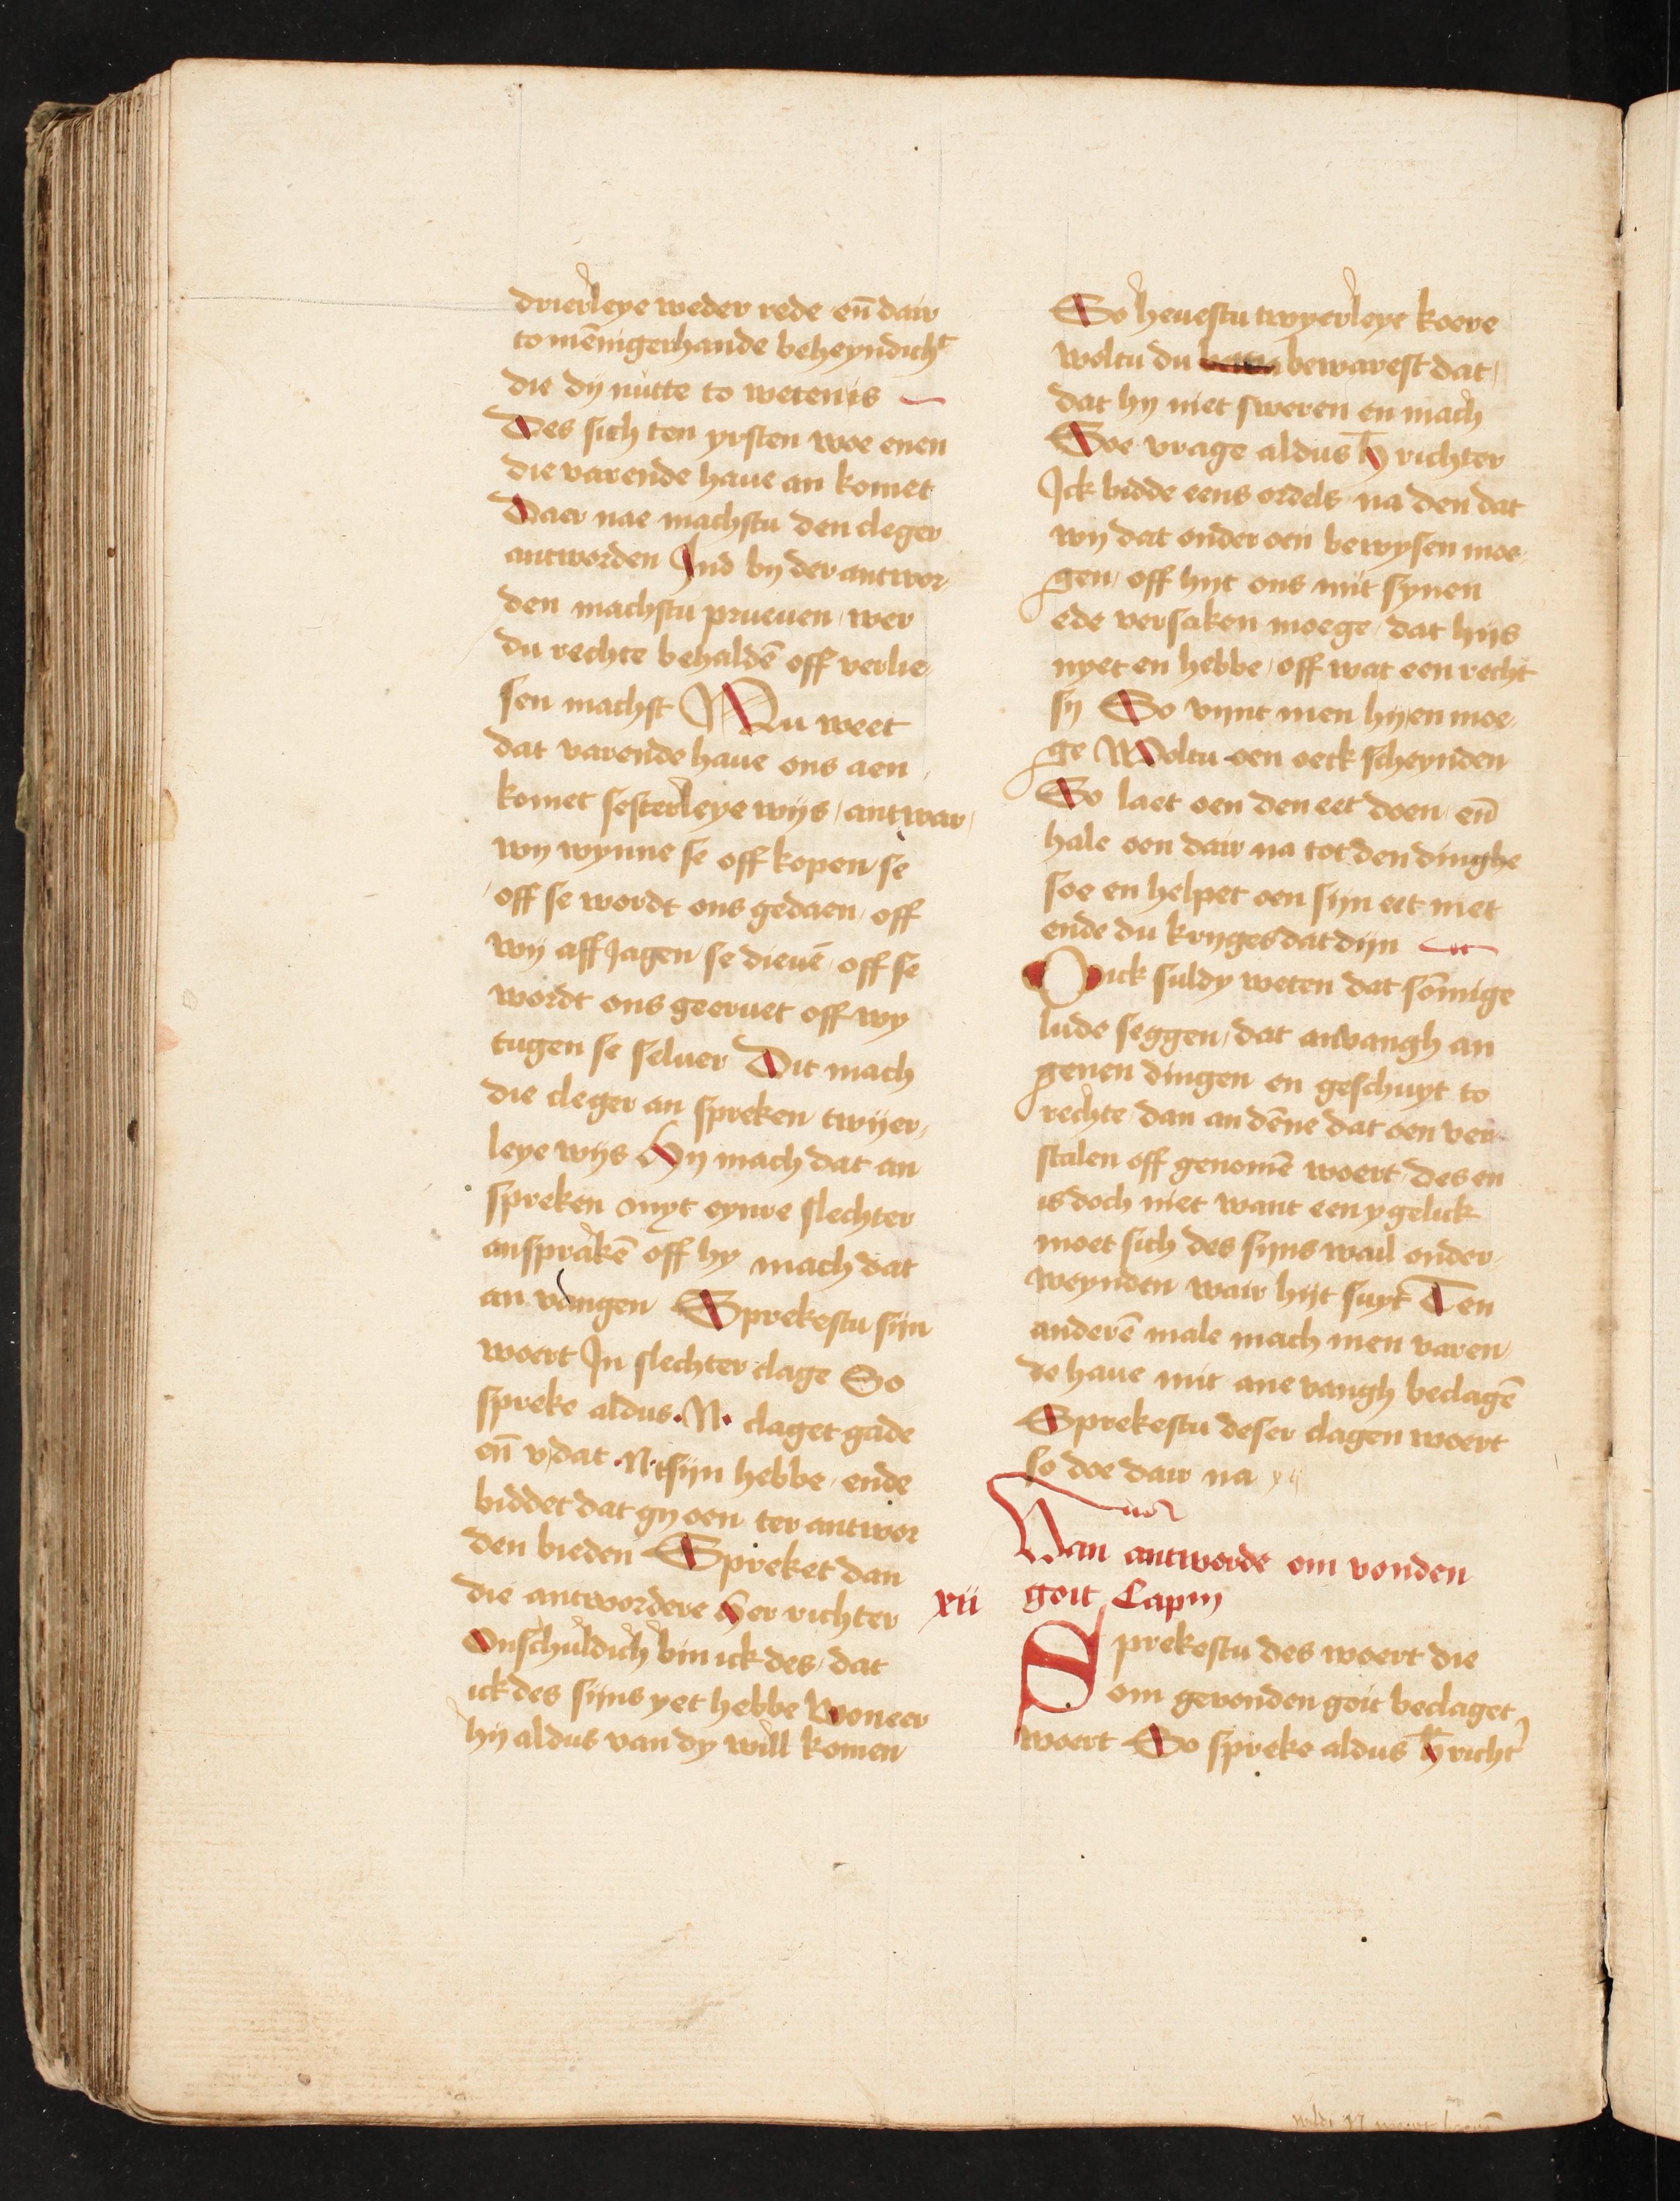 drierleye weder rede en̄ dair
to mēnigerhande beheyndicht
die dij nutte to weten is
Des sich ten yrsten woe enen
die varende haue an komet
Daer nae machstu den cleger
antworden Ind by der antwor
den machstu prueuen wer
du rechte behaldē off verlie
sen machst Nu weet
dat varende haue ons aen
komet sesterleye wijs antwar
wij wynne se off kopen se
off se wordt ons gedaen off
wij aff Jagen se dieuē off se
wordt ons geeruet off wy
tugen se seluer Dit mach
die cleger an spreken twijer
leye wijs Hij mach dat an
spreken myt eynre slechter
anspràkē off hy mach dat
an vangen Sprekestu sijn
woert In slechter clage So
spreke aldus ·N· claget gade
en̄ v dat ·N· tsijn hebbe ende
biddet dat gy oen ter antwor
den bieden Spreket dan
die antwordere Her richter
Onschuldich bin ick des dat
ick des sijns yet hebbe Woneer
hij aldus van dy will komen
So heuestu twyerleye koere
woltu du bewarest dat
dat hy niet sweren en mach
Soe vrage aldus h̄ richter
Ick bidde eens ordels na den dat
wij dat onder oen bewysen moe
gen off hijt ons mit synen
ede versaken moege dat hijs
nyet en hebbe off wat een recht
sij So vijnt men hij en moe
ge Woltu oen oeck scheynden
So laet oen den eet doen en̄
hale oen dair na tot den dinghe
soe en helpet oen sijn eet niet
ende du kryges dat dijn
Oick suldy weten dat sōmige
lude seggen dat anvangh an
genen dingen en geschuyt to
rechte dan an dēne dat oen ver
stalen off genomē woert des en
is doch niet want een ygelick
moet sich des sijns wail onder
weynden wair hijt suyt Ten
anderē male mach men varen
de haue mit ane vangh beclagē
Sprekestu deser clagen woert
so doe dair na
Van antworde om vonden
xii goit Capm
Sprekestu des woert die
om gevonden goit beclaget
woert So spreke aldus h̄ richt